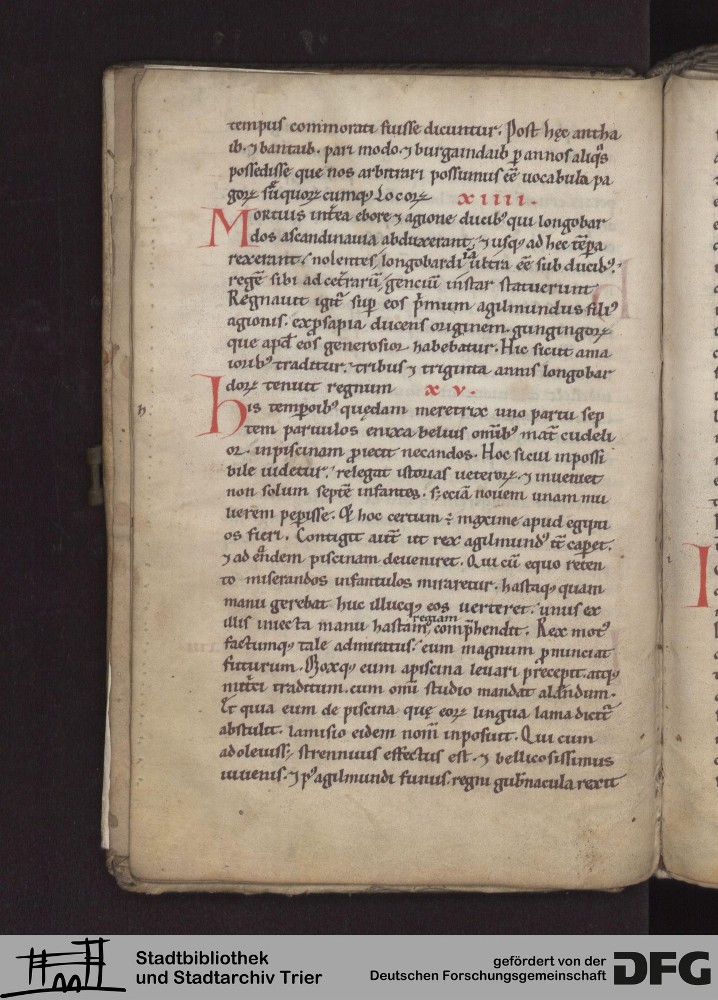 tempus commorati fuisse dicuntur. Post hęc antha
ib. ⁊ bantaib. pari modo. ⁊ burgundaib p annos aliq̄s
possedisse que nos arbitrari possumus eē uocabula pa
goꝝ seu quoꝝcumq; Locoꝝ xiiii.
Mortuis int̄ea ebore ⁊ agione ducib; qui longobar
dos ascandinauia abduxerant, ⁊ usq; ad hec tēpora
rexerant, nolentes longobardi ultra eē sub ducib;
regē sibi ad cet̄rarū genciū instar statuerunt
Regnauit igit̄ sup eos p̄mum agilmundus fili;
agionis. ex prosapia ducens originem gungingoꝝ
que apd̄ eos generosior habebatur. Hic sicut ama
iorib; traditur. tribus ⁊ triginta annis longobar
doꝝ tenuit regnum xv.
h
his temporib; quędam meretrix uno partu sep
tem paruulos enixa belius omīb; mat̄ crudeli
or. inpiscinam proiecit necandos. Hoc sicui inpossi
bile uidetur. relegat istorias ueteroꝝ. ⁊ inueniet
non solum septē infantes. s; eciā nouem unam mu
lierem peperisse. Et hoc certum ÷ maxime apud egipti
os fieri. Contigit aut̄ ut rex agilmund; iter caperet.
⁊ ad eandem piscinam deueniret. Qui cū equo reten
to miserandos infantulos miraretur. hastaq; quam
manu gerebat huc illucq; eos uerteret. unus ex
illis iniecta manu hastam regiam comp̄hendit. Rex mot;
factumq; tale admiratus. eum magnum pronunciat
futurum. Moxq; eum apiscina leuari precepit. atq;
nutrici traditum. cum omī studio mandat alendum.
Et qua eum de piscina quę eoꝝ lingua lama dicit̄
abstulit. lamisio eidem nom̄ inposuit. Qui cum
adoleuiss; strennuus effectus est. ⁊ bellicosissimus
iuuenis. ⁊ p; agilmundi funus. regni gub̄nacula rexit
Stadtbibliothek
und Stadtarchiv Trier
gefördert von der
Deutschen Forschungsgemeinschaft
DFG